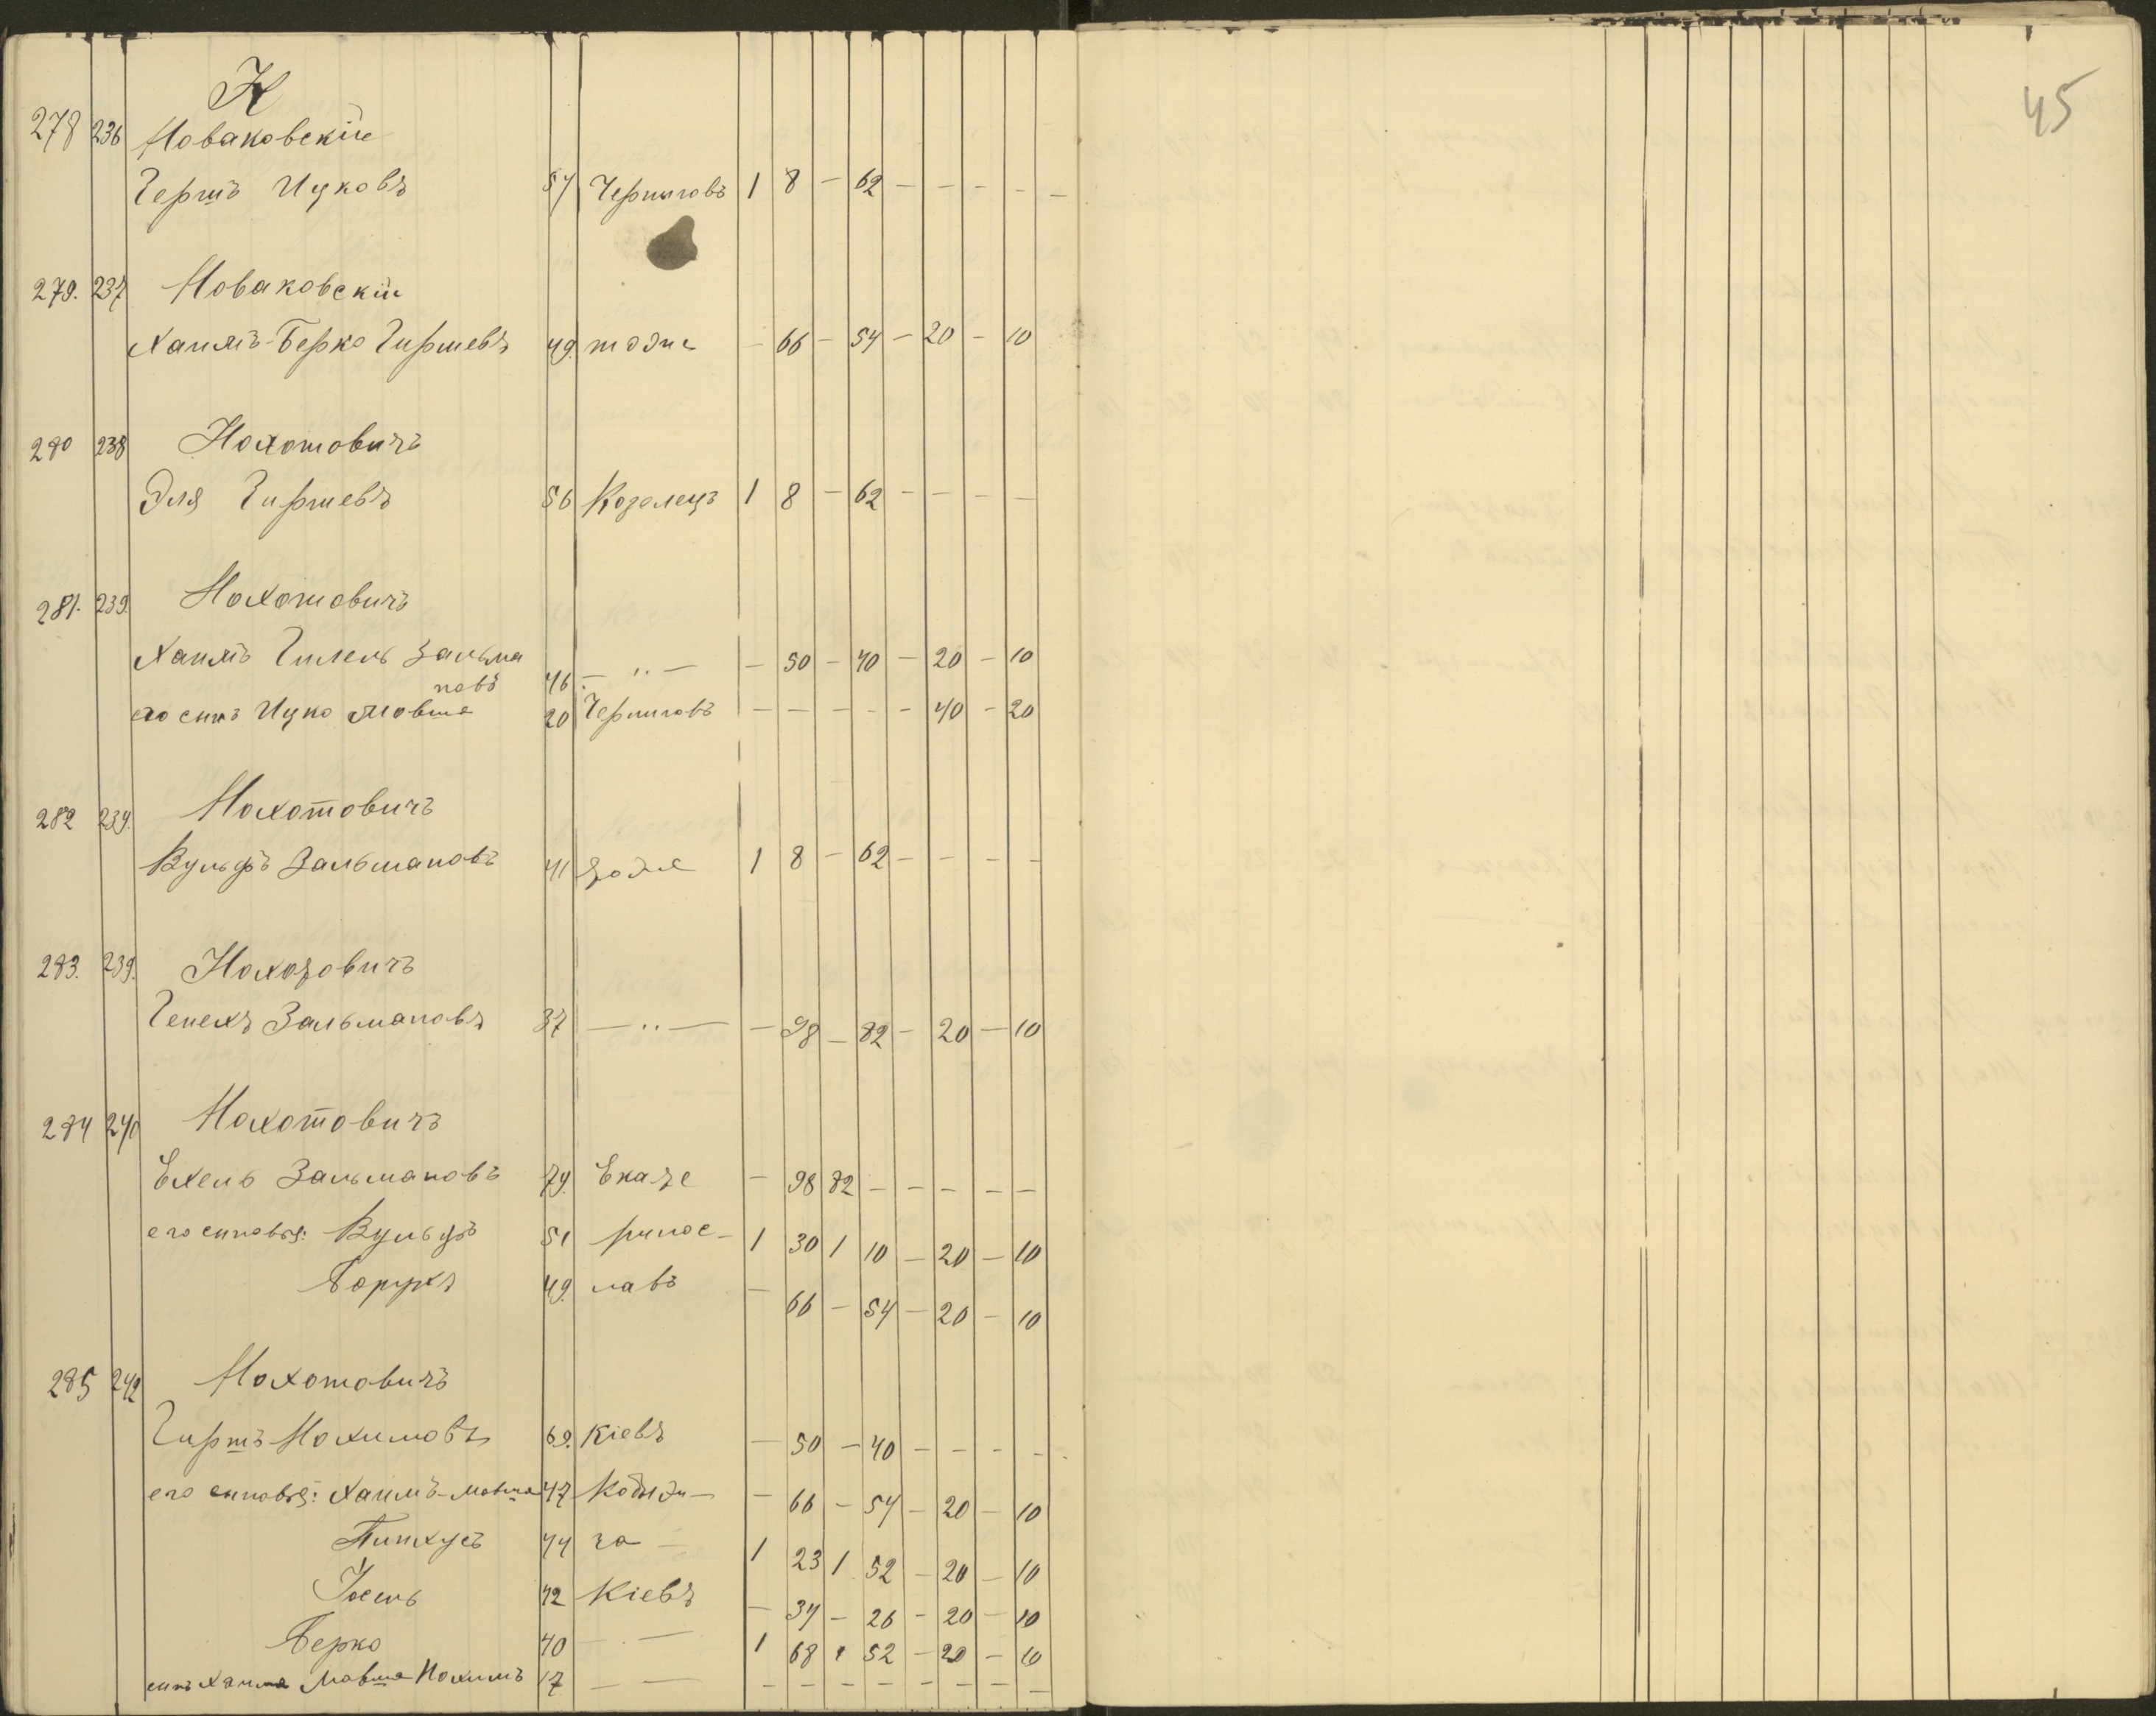 45
Н
278 236 Новаковскій
Гершъ Ицковъ 57 Черниговъ 1 8 — 62 — — — — —
279. 237 Новаковскій
Хаимъ-Берко Гиршевъ 49. тоже — 66 — 54 — 20 — 10
280 238 Нохотовичъ
Эля Гиршевъ 56 Козелецъ 1 8 — 62 — — — —
281. 239. Нохотовичъ
Хаимъ Гилель Зальма
новъ 46. — " — — 50 — 40 — 20 — 10
его сынъ Ицко Мовша 20 Черниговъ — — — — — 40 — 20
282 239. Нохотовичъ
Вульфъ Зальмановъ 41 тоже 1 8 — 62 — — — —
283. 239. Нохотовичъ
Генехъ Зальмановъ 37 — " — — 98 — 82 — 20 — 10
284 240 Нохотовичъ
Ехель Зальмановъ 79. Екате — 98 82 — — — — —
его сыновья: Вульфъ 51 ринос- 1 30 1 10 — 20 — 10
Борухъ 49. лавъ — 66 — 54 — 20 — 10
285 242 Нохотовичъ
Гиршъ Нохимовъ 69. Кіевъ — 50 — 40 — — — —
его сыновья: Хаимъ-Мовша 47 — 66 — 54 — 20 — 10
Пинхусъ 44 1 23 1 52 — 20 — 10
Іосель 42 Кіевъ — 34 — 26 — 20 — 10
Берко 40 — — 1 68 1 52 — 20 — 10
сынъ Хаима Мовша Нохимъ 17 — — — — — — — — — —